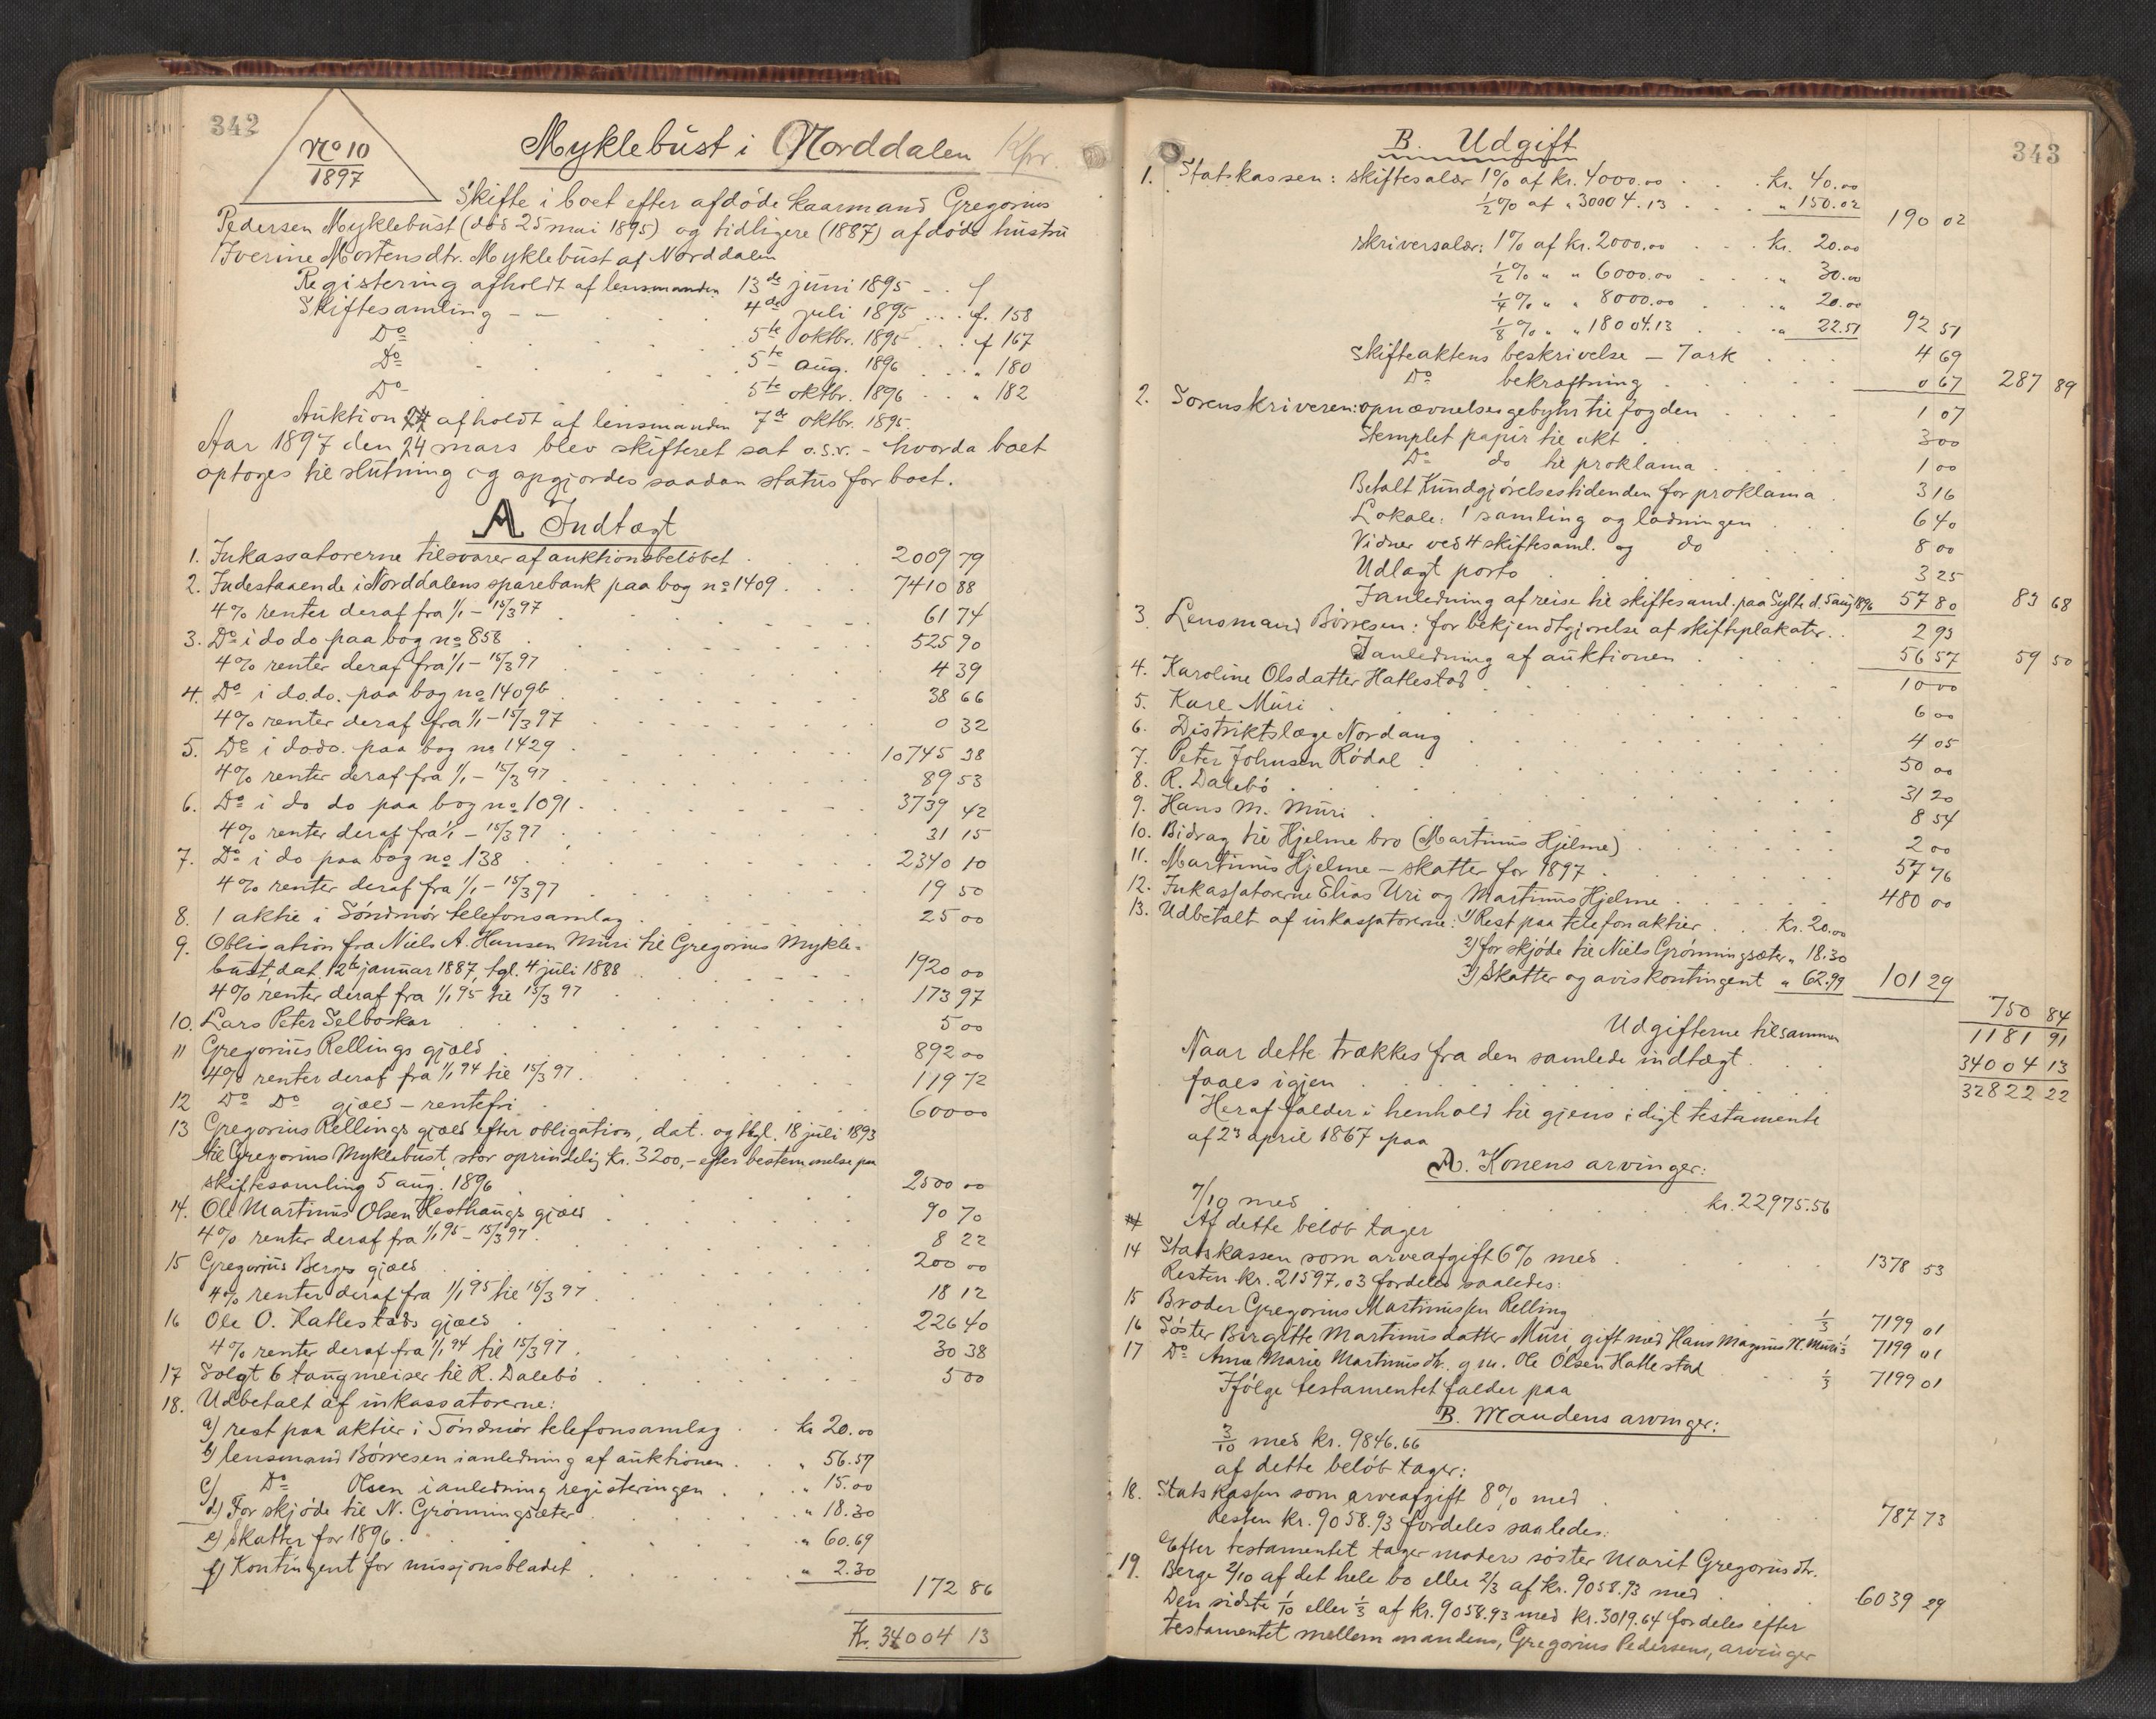 342
No 10
1897
Myklebust i Norddalen Kfr.
Skifte i boet efter afdøde kaarmand Gregorius
Pedersen Myklebust (død 25 mai 1895) og tidligere (1887) afdøde hustru
Iverine Mortensdtr. Myklebust af Norddalen
Registering afholdt af lensmanden 13de juni 1895 - - f
Skiftesamling - - 4de juli 1895 . . . f. 158
Do 5te oktbr. 1895 . . . f 167
Do 5te aug. 1896 . . . " 180
Do 5te oktbr. 1896 . . . " 182
Auktion afholdt af lensmanden 7de oktbr. 1895.
Aar 1897 den 24 mars blev skifteret sat o.s.v. - hvorda boet
optoges til slutning og opgjordes saadan status for boet.
A Indtægt
1. Inkassatorerne tilsvarer af auktionsbeløbet . 2009 79
2. Indestaaende i Norddalens sparebank paa bog no 1409 . . . 7410 88
4% renter deraf fra 1/1 - 15/3 97 61 74
3. Do i do do paa bog no 858 525 90
4% renter deraf fra 1/1 - 15/3 97 4 39
4. Do i do.do. paa bog no 1409b 38 66
4% renter deraf fra 1/1 - 15/3 97 0 32
5. Do i dodo. paa bog no 1429 10745 38
4% renter deraf fra 1/1 - 15/3 97 89 53
6. Do i do do paa bog no 1091. 3739 42
4% renter deraf fra 1/1 - 15/3 97 31 15
7. Do i do paa bog no 138 2340 10
4% renter deraf fra 1/1 - 15/3 97 19 50
8. 1 aktie i Söndmör telefonsamlag 25 00
9. Obligation fra Niels A. Hansen Muri til Gregorius Mykle-
bust, dat. 12te januar 1887, tgl. 4 juli 1888 1920 00
4% renter deraf fra 1/1 95 til 15/3 97 173 97
10. Lars Peter Selboskar 5 00
11 Gregorius Rellings gjæld 892 00
4% renter deraf fra 1/1 94 til 15/3 97. 119 72
12 Do Do gjæld - rentefri 600 00
13 Gregorius Rellings gjæld efter obligation, dat. og tgl. 18 juli 1893
til Gregorius Myklebust, stor oprindelig kr. 3200,- efter bestemmelse paa
skiftesamling 5 aug. 1896 2500 00
14. Ole Martinus Olsen Hesthaugs gjæld 90 70
4% renter deraf fra 1/1 95 - 15/3 97. 8 22
15 Gregorius Berges gjæld 200 00
4% renter deraf fra 1/1 95 til 15/3 97 18 12
16 Ole O. Hatlestads gjæld 226 40
4% renter deraf fra 1/1 94 til 15/3 97. 30 38
17 Solgt 6 taugmeiser til R. Dalebø 5 00
18. Udbetalt af inkassatorerne:
a) rest paa aktier i Söndmör telefonsamlag . . kr 20.00
b) lensmand Børresen i anledning af auktionen . . " 56.57
c) Do Olsen i anledning registeringen . . . " 15.00
d) For skjøde til N. Grønningsæter " 18.30
e) Skatter for 1896 . " 60.69
f) Kontingent for missjonsbladet " 2.30
172 86
Kr. 34004 13
343
B. Udgift
1. Statskassen: skiftesalær 1% af kr. 4000.00 . . . kr. 40.00
1/2% af " 30004.13 . . . " 150.02
190 02
skriversalær: 1% af kr. 2000.00 . . kr. 20.00
1/2% " " 6000.00 . . . " 30.00
1/4% " " 8000.00 . . . " 20.00
1/8% " " 18004.13 . . " 22.51 92 51
Skifteaktens beskrivelse - 7 ark 4 69
Do bekræftning 0 67 287 89
2. Sorenskriveren: opnævnelsesgebyhr til fogden 1 07
Stemplet papir til akt . 3 00
Do do til proklama 1 00
Betalt Kundgjørelsestidenden for proklama . 3 16
Lokale: 1 samling og ladningen 6 40
Vidner ved 4 skiftesaml. og do 8 00
Udlagt porto 3 25
I anledning af reise til skiftesaml. paa Sylte d. 5 aug 1896 57 80 83 68
3. Lensmand Börresen: for bekjendtgjørelse af skifteplakater . . 2 93
I anledning af auktionen 56 57 59 50
4. Karoline Olsdatter Hatlestad 10 00
5. Kare Muri 6 00
6. Distriktslæge Nordang 4 05
7. Peter Johnsen Rødal 50 00
8. R. Dalebø 31 20
9. Hans M. Muri 8 54
10. Bidrag til Hjelme bro (Martinus Hjelme) 2 00
11. Martinus Hjelme - skatter for 1897 57 76
12. Inkassatorerne Elias Uri og Martinus Hjelme 480 00
13. Udbetalt af inkassatorerne: 1) Rest paa telefonaktier . . . kr. 20.00
2) for skjøde til Niels Grønningsæter " 18.30
3) Skatter og aviskontingent " 62.99 101 29
750 84
Udgifterne tilsammen 1181 91
Naar dette trækkes fra den samlede indtægt . 34004 13
faaes igjen 32822 22
Heraf falder i henhold til gjensidigt testamente
af 23 april 1867 paa
A. Konens arvinger:
7/10 med kr. 22975.56
Af dette beløb tager
14 Statskassen som arveafgift 6% med 1378 53
Resten kr. 21597.03 fordeles saaledes:
15 Broder Gregorius Martinussen Relling 1/3 7199 01
16 Søster Birgitte Martinusdatter Muri, gift med Hans Magnus N. Muri 1/3 7199 01
17 Do Anna Marie Martinusdtr. g.m. Ole Olsen Hatlestad 1/3 7199 01
Ifølge testamentet falder paa
B. Mandens arvinger:
3/10 med kr. 9846.66
af dette beløb tager:
18. Statskassen som arveafgift 8% med 787 73
Resten kr. 9058.93 fordeles saaledes:
Efter testamentet tager moders søster Marit Gregoriusdtr.
19. Berge 2/10 af det hele bo eller 2/3 af kr. 9058.93 med 6039 29
Den sidste 1/10 eller 1/3 af kr. 9058.93 med kr. 3019.64 fordeles efter
testamentet mellem mandens, Gregorius Pedersens, arvinger